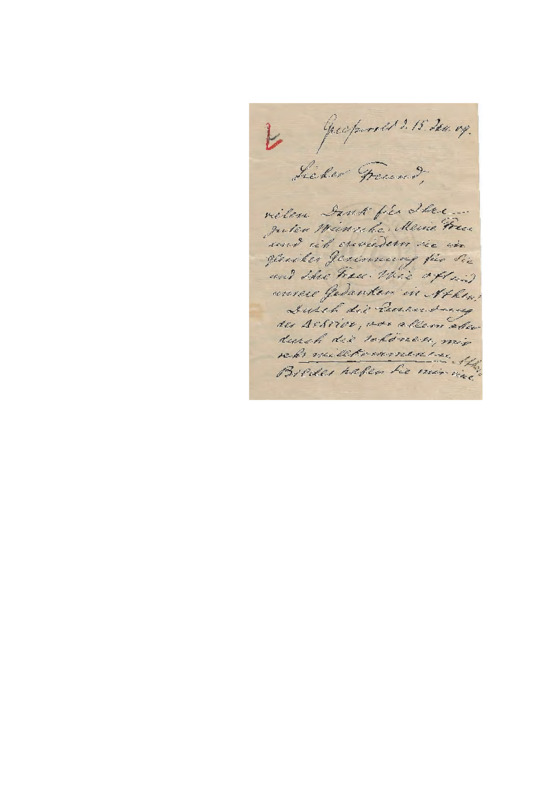 Greifswald d. 15. Jan. 09.
Lieber Freund,
vielen Dank für Ihre
guten Wünsche. Meine Frau
und ich erwidern sie in
gleicher Gesinnung für Sie
und Ihre Frau. Wie oft sind
unsere Gedanken in Athen!
Durch die Zusendung
des Δελτίον, vor allem aber
durch die schönen, mir
sehr willkommenen Athen
Bilder haben Sie mir eine